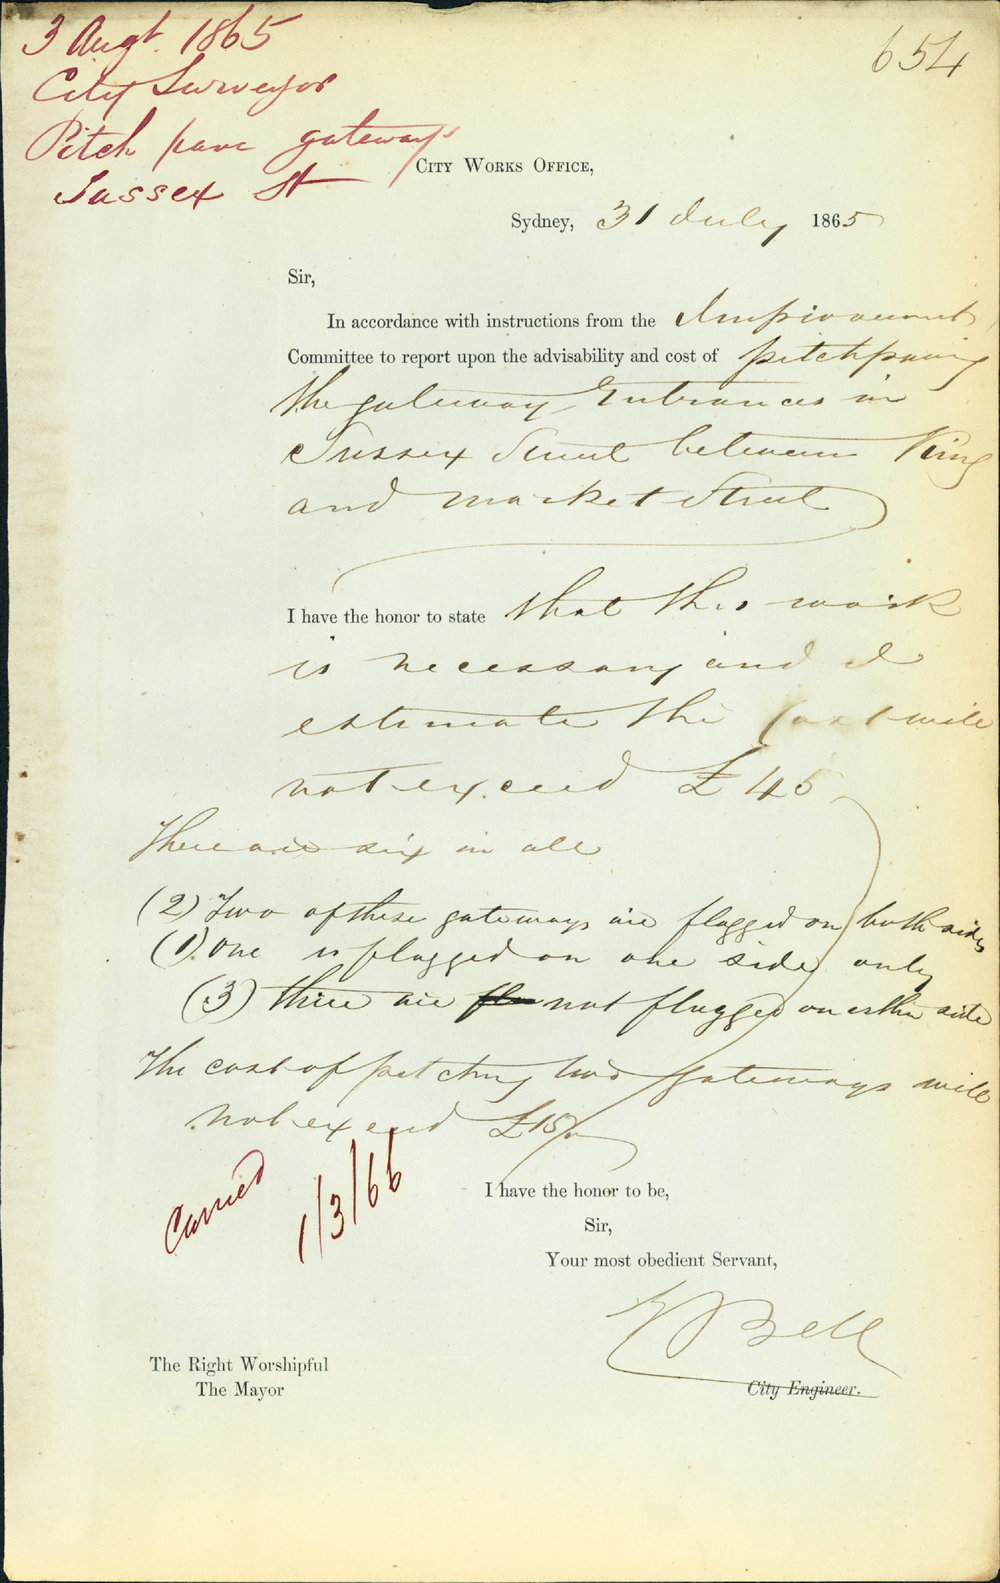 3 Augt. 1865
654
City Surveyor
Pitch pave gateways
Sussex St
CITY WORKS OFFICE,
Sydney, 31 July 1865
Sir,
In accordance with instructions from the Improvement
Committee to report upon the advisability and cost of pitchpaving
the gateway Entrances in
Sussex Street between King
and Market Street
I have the honor to state that this work
is necessary and I
estimate the cost will
not exceed £45
There are six in all
(2) Two of these gateways are flagged on both sides
(1) One is flagged on one side only
(3) three are not flagged on either side
The cost of pitching two gateways will
not exceed £15
Carried 1/3/66
I have the honor to be,
Sir,
Your most obedient Servant,
E Bell
The Right Worshipful
The Mayor
City Engineer.